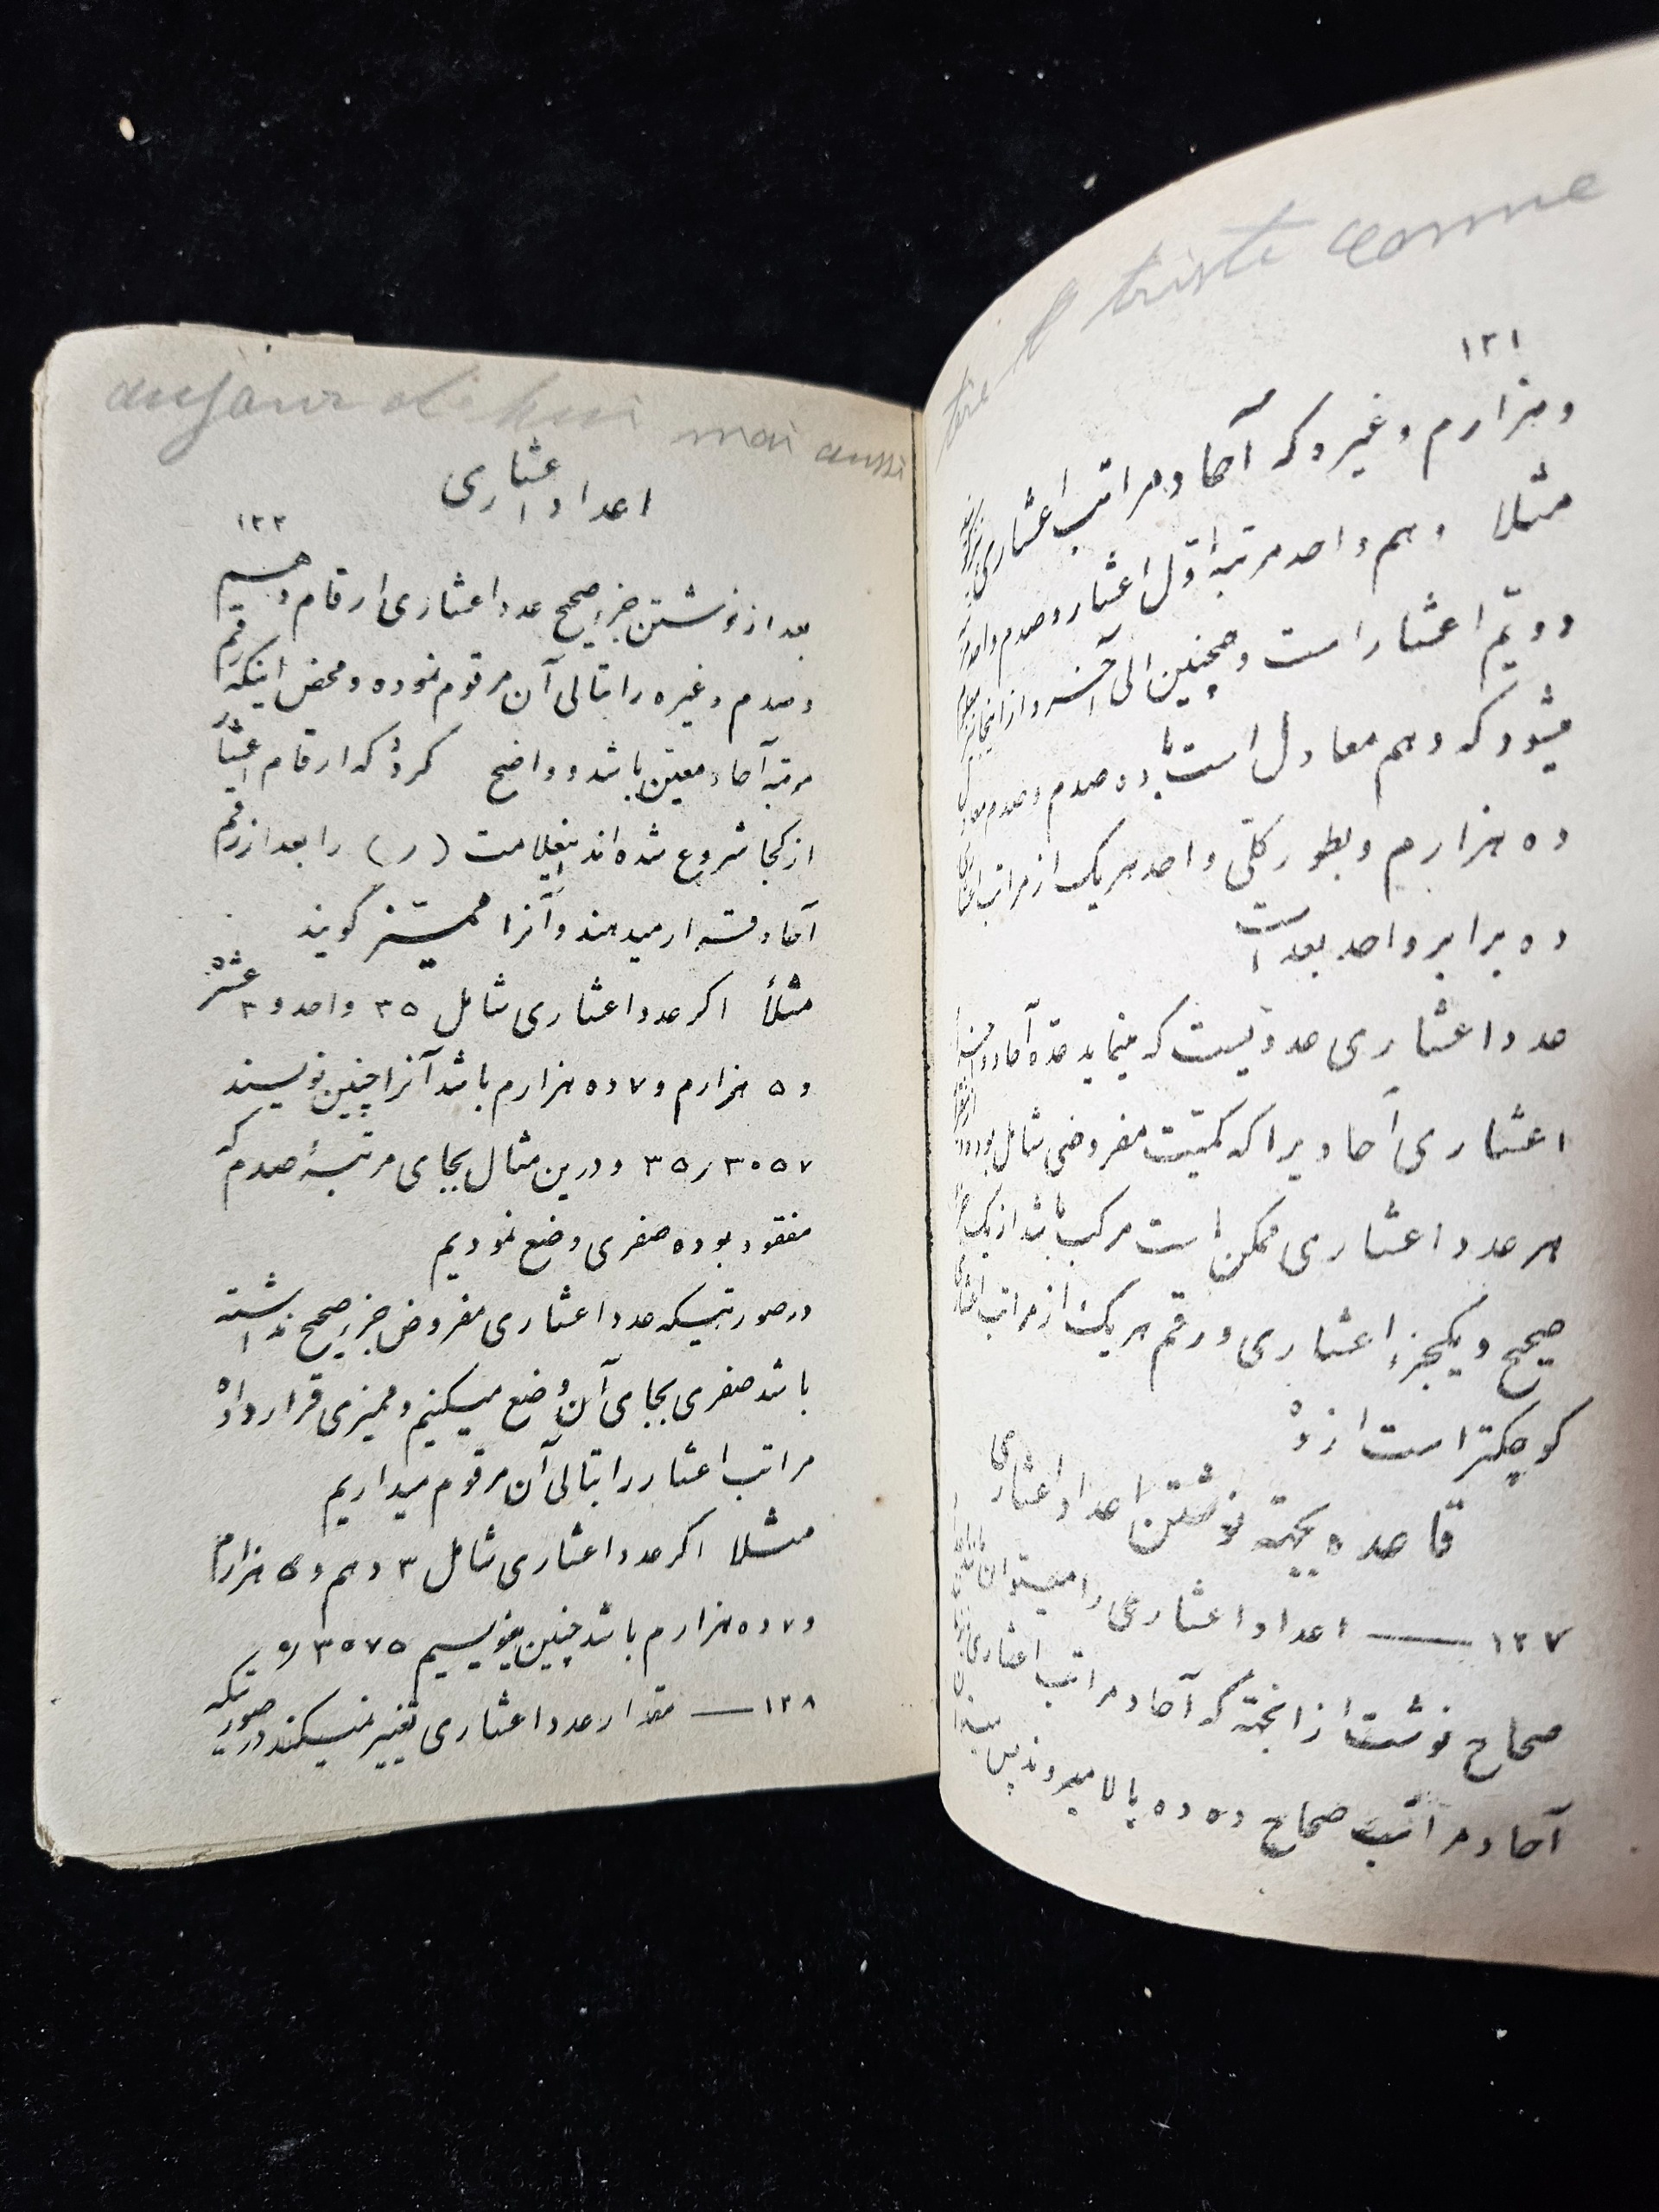 triste comme
۱۲۱
و هزارم و غیره که آحاد مراتب اعشاری
مثلا دهم واحد مرتبه اوّل اعشار و صدم واحد
دویّم اعشار است و همچنین الی آخر و از اینجا
میشود که دهم معادل است با ده صدم و صدم معادل
ده هزارم و بطور کلّی واحد هر یک از مراتب اعشاری
ده برابر واحد بعد است
عدد اعشاری عددیست که مینماید عده آحاد و اجزاء
اعشاری آحادیرا که کمیّت مفروضی شامل بود
هر عدد اعشاری ممکن است مرکب باشد از یک جزء
صحیح و یکجزء اعشاری و رقم هر یک از مراتب اعشاری
کوچکتر است از ده
قاعده بجهته نوشتن اعداد اعشاری
۱۲۷ — اعداد اعشاری را میتوان مانند اعداد
صحاح نوشت از انجهته که آحاد مراتب اعشاری
آحاد مراتب صحاح ده ده بالا میروند پس
aujour d'hui moi aussi
اعداد اعشاری
۱۲۲
بعد از نوشتن جزء صحیح عدد اعشاری ارقام دهم
و صدم و غیره را بتالی آن مرقوم نموده و محض اینکه رقم
مرتبه آحاد معین باشد و واضح کردد که ارقام اعشار
از کجا شروع شده اند اینعلامت (ر) را بعد از رقم
آحاد قرار میدهند و آنرا ممیّز گویند
مثلاً اکر عدد اعشاری شامل ۳۵ واحد و ۳ عشر
و ۵ هزارم و ۷ ده هزارم باشد آنرا چنین نویسند
۳۵ر۳۰۵۷ و درین مثال بجای مرتبهٔ صدم که
مفقود بوده صفری وضع نمودیم
در صورتیکه عدد اعشاری مفروض جزء صحیح نداشته
باشد صفری بجای آن وضع میکنیم و ممیزی قرار داده
مراتب اعشار را بتالی آن مرقوم میداریم
مثلا اکر عدد اعشاری شامل ۳ دهم و ۵ هزارم
و ۷ ده هزارم باشد چنین مینویسیم
۱۲۸ — مقدار عدد اعشاری تغییر نمیکند در صورتیکه